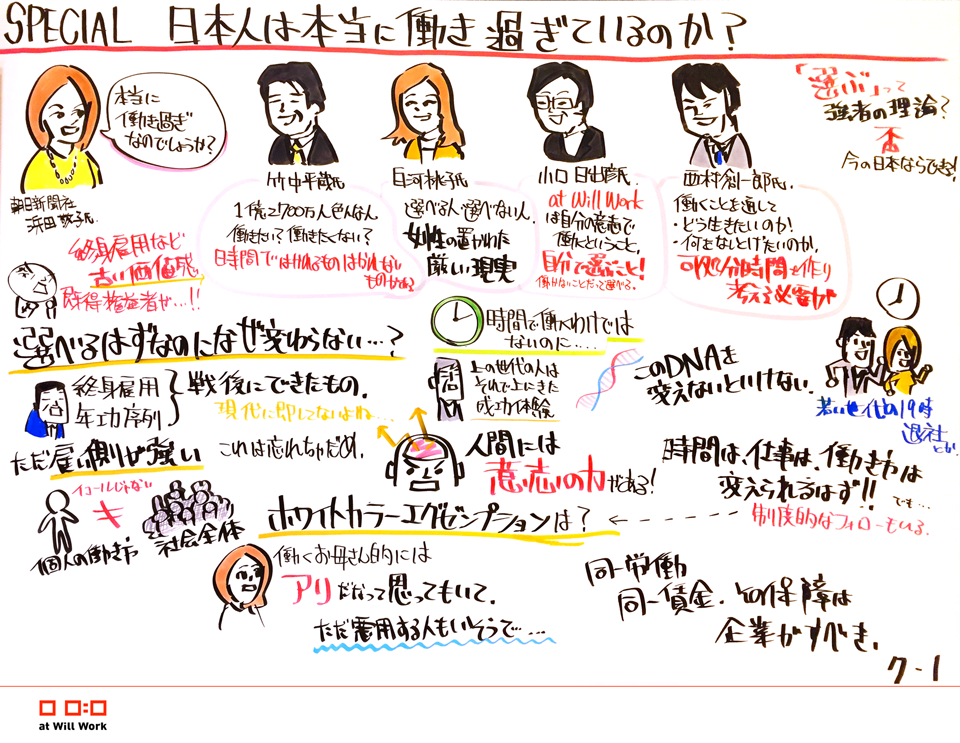 SPECIAL 日本人は本当に働き過ぎているのか？
本当に
働き過ぎ
なのでしょうか？
朝日新聞社
浜田敬子氏
竹中平蔵氏
白河桃子氏
小口日出彦氏
西村創一郎氏
「選ぶ」って
強者の理論？
今の日本ならできる！
1億2700万人色んな人
働きたい？働きたくない？
時間ではかれるものはかれない
ものがある
選べる人・選べない人
女性の置かれた
厳しい現実
at Will Work
は自分の意志で
働くということ。
自分で選ぶこと！
働かないことだって選べる。
働くことを通して
・どう生きたいのか！
・何をなしとげたいのか。
可処分時間を作り
考える必要が
終身雇用など
古い価値感
既得権益者が…!!
選べるはずなのになぜ変わらない…？
時間で働くわけでは
ないのに……
終身雇用
年功序列
戦後にできたもの。
現代に即してないよね…
上の世代の人は
それで上にきた
成功体験
このDNAを
変えないといけない。
若い世代の19時
退社とか。
ただ雇い側が強い
これは忘れちゃだめ。
人間には
意志の力がある！
時間は、仕事は、働き方は
変えられるはず!!
でも…
制度的なフォローもいる。
イコールじゃない
≠
個人の働き方
社会全体
ホワイトカラーエグゼンプションは？
働くお母さん的には
アリだなって思ってもいて。
ただ悪用する人もいそうで…
同一労働
同一賃金、との保障は
企業がすべき。
7-1
at Will Work